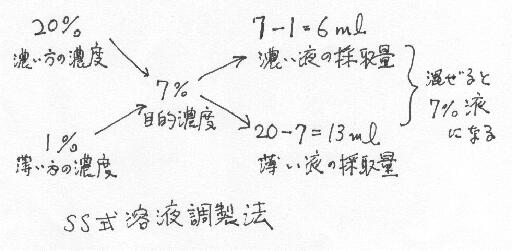 20%
濃い方の濃度
7%
目的濃度
1%
薄い方の濃度
7-1=6ml
濃い液の採取量
20-7=13ml
薄い液の採取量
混ぜると
7%液
になる
SS式溶液調製法